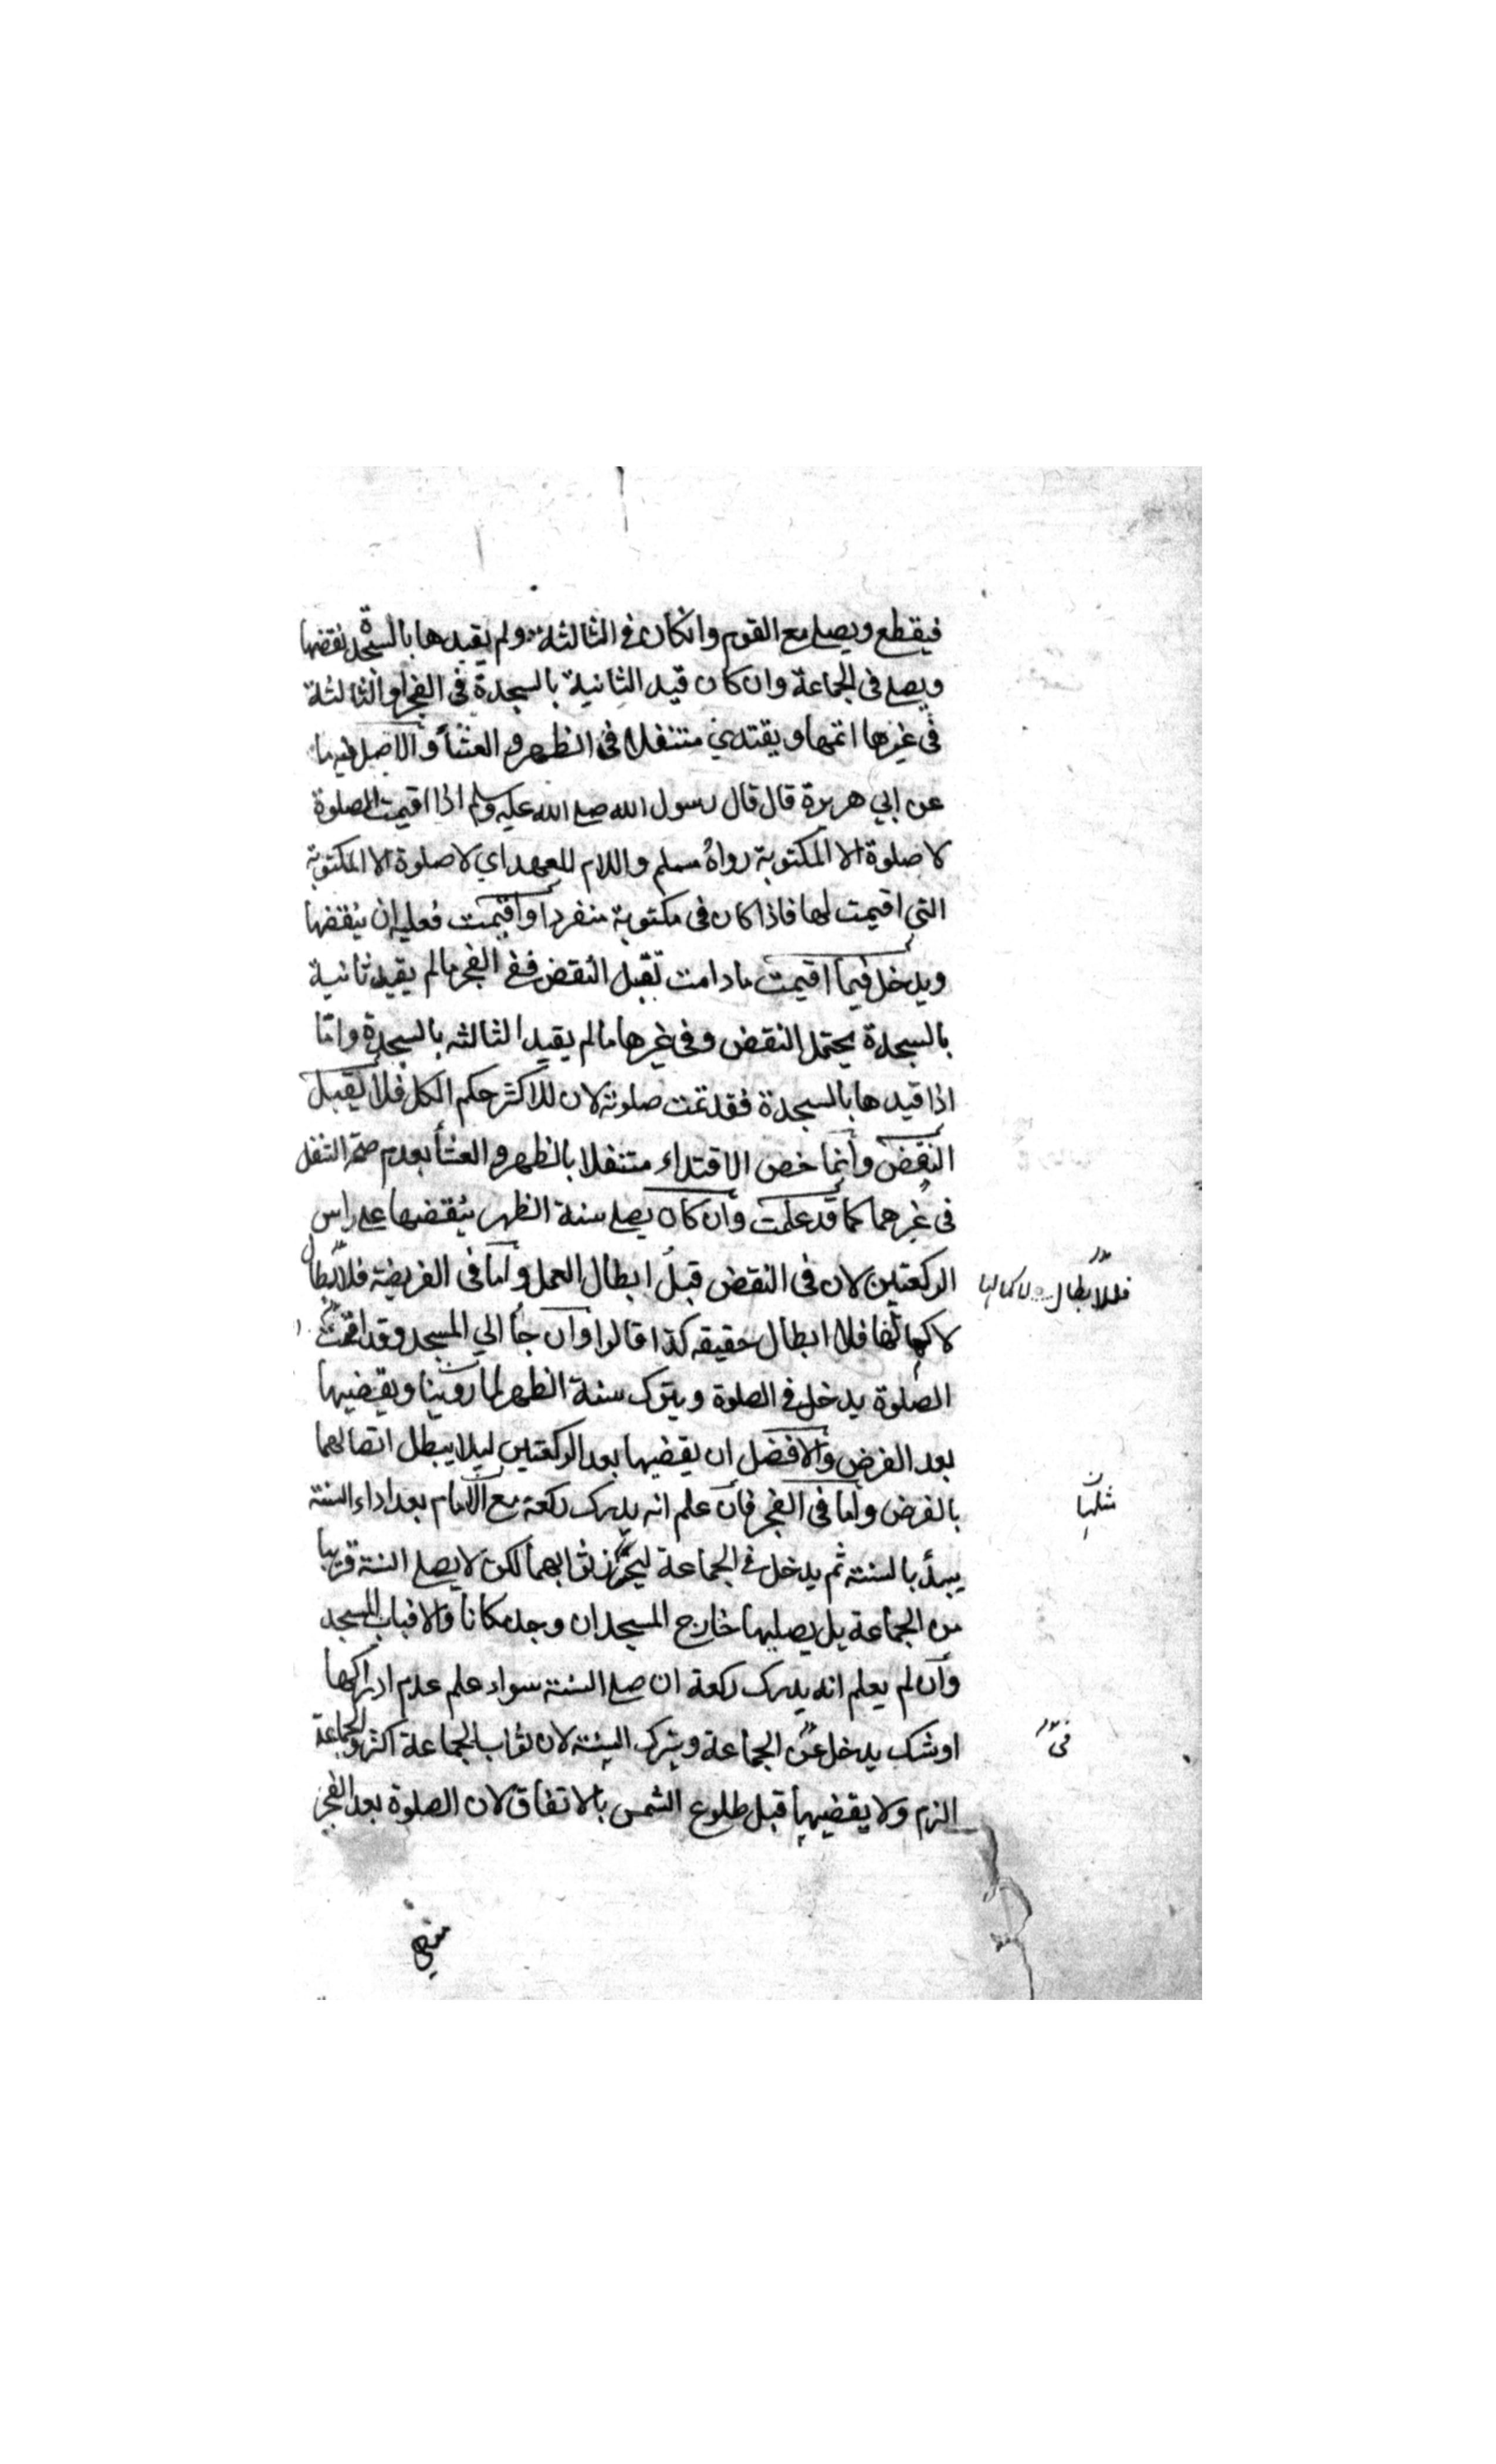 فيقطع ويصلي مع القوم وانكان في الثالثة ولم يقيدها بالسجدة نقضها
ويصلي في الجماعة وان كان قيد الثانية بالسجدة في الفجر او الثالثة
في غيرها اتمها ويقتدي متنفلا في الظهر والعشأ والاصل فيه ما
عن ابي هريرة قال قال رسول الله صلى الله عليه وسلم اذا اقيمت الصلوة
لا صلوة الا المكتوبة رواه مسلم واللام للعهد اي لا صلوة الا المكتوبة
التي اقيمت لها فاذا كان في مكتوبة منفردا واقيمت فعليه ان ينقضها
ويدخل فيما اقيمت مادامت تقبل النقض ففي الفجر مالم يقيد ثانية
بالسجدة يحتمل النقض وفي غيرها مالم يقيد الثالثه بالسجدة واما
اذا قيدها بالسجدة فقد تمت صلوته لان للاكثر حكم الكل فلا يقبل
النقض وانما خص الاقتداء متنفلا بالظهر والعشأ بعدم صحة التنفل
في غيرهما كما قد علمت وان كان يصلي سنة الظهر ينقضها على راس
الركعتين لان في النقض قبل ابطال العمل واما في الفريضة فالابطال
لاكمالها فلا ابطال حقيقه كذا قالوا وان جأ الي المسجد وقد اقيمت
الصلوة يدخل في الصلوة ويترك سنة الظهر لما روينا ويقضيها
بعد الفرض والافضل ان يقضيها بعد الركعتين ليلا يبطل اتصالهما
بالفرض واما في الفجر فان علم انه يدرك ركعة مع الامام بعد اداء السنة
يبدأ بالسنة ثم يدخل في الجماعة ليحرز ثوابهما لكن لا يصلي السنة قريبا
من الجماعة بل يصليها خارج المسجد ان وجد مكانا والا فباب المسجد
وان لم يعلم انه يدرك ركعة ان صلى السنة سواء علم عدم ادراكها
او شك يدخل في الجماعة ويترك السنة لان ثواب الجماعة اكثر والجماعة
الزم ولا يقضيها قبل طلوع الشمس بالاتفاق لان الصلوة بعد الفجر
فللابطال لاكمالها
في